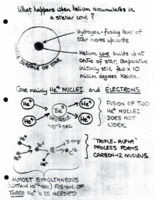 What happens when helium accumulates in
a stellar core?
Hydrogen-fusing level of
star moves upwards
Helium core builds up at
centre of star, temperature
initially still few × 10
million degrees Kelvin.
SURFACE OF STAR
Core mainly He⁴ NUCLEI and ELECTRONS.
He⁴
He⁴
FUSION OF TWO
He⁴ NUCLEI
DOES NOT
WORK
He⁴
He⁴
"TRIPLE-ALPHA"
PROCESS FORMS
CARBON-12 NUCLEUS.
ALMOST SIMULTANEOUS
FUSION OF
THREE He⁴'s IS NEEDED